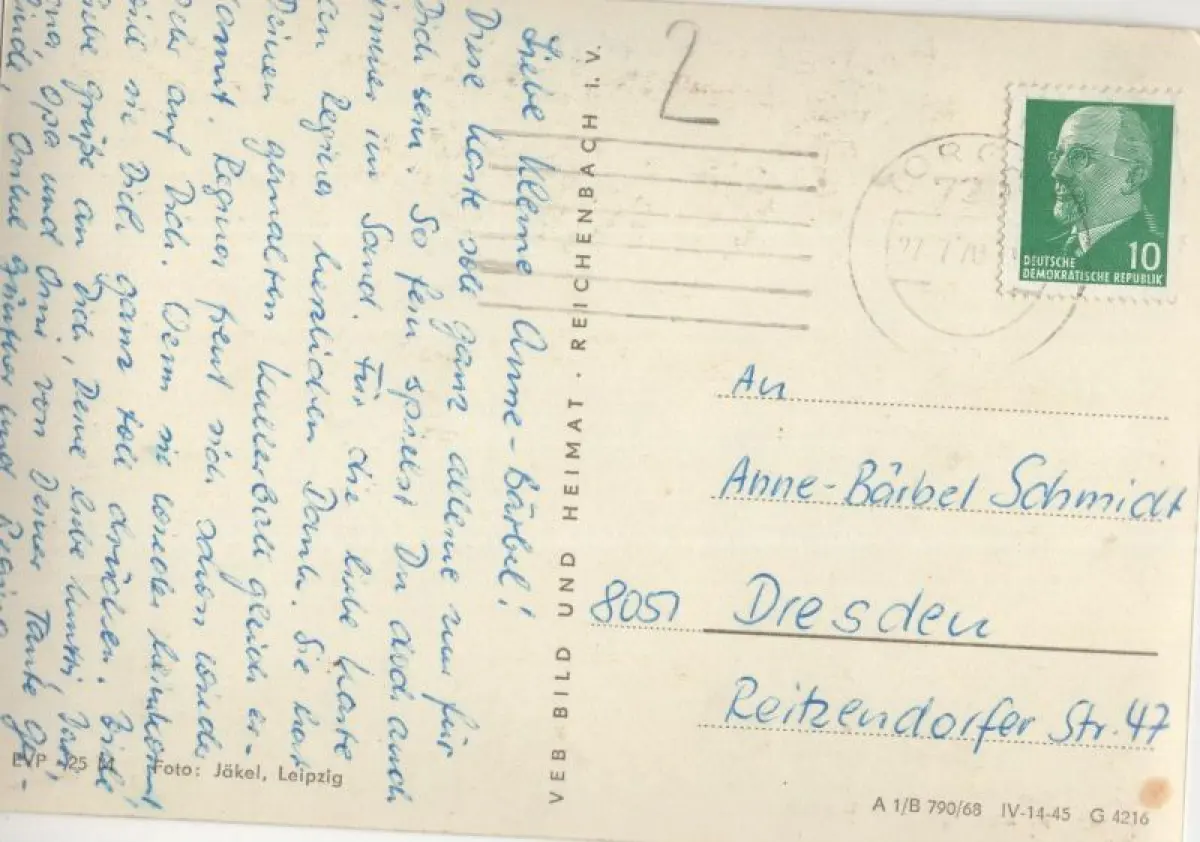 Liebe kleine Anne-Bärbel!
Diese Karte soll ganz allein nur für
Dich sein. So fein spielst Du doch auch
immer im Sand. Für die liebe Karte
an Regina herzlichen Dank. Sie hat
Deinen gemalten Kullerball gleich er-
kannt. Regina freut sich schon wieder
sehr auf Dich. Wenn sie wieder kommt,
will sie Dich ganz toll drücken. Viele
liebe Grüße an Dich, Deine liebe Mutti, Vati,
Oma, Opa und Omi von Deiner Tante Ge-
Onkel Günther und Regina
2
77
27.7.70
10
DEUTSCHE
DEMOKRATISCHE REPUBLIK
An
Anne-Bärbel Schmidt
8051 Dresden
Reitzendorfer Str. 47
VEB BILD UND HEIMAT · REICHENBACH I. V.
EVP 25 M Foto: Jäkel, Leipzig
A 1/B 790/68 IV-14-45 G 4216